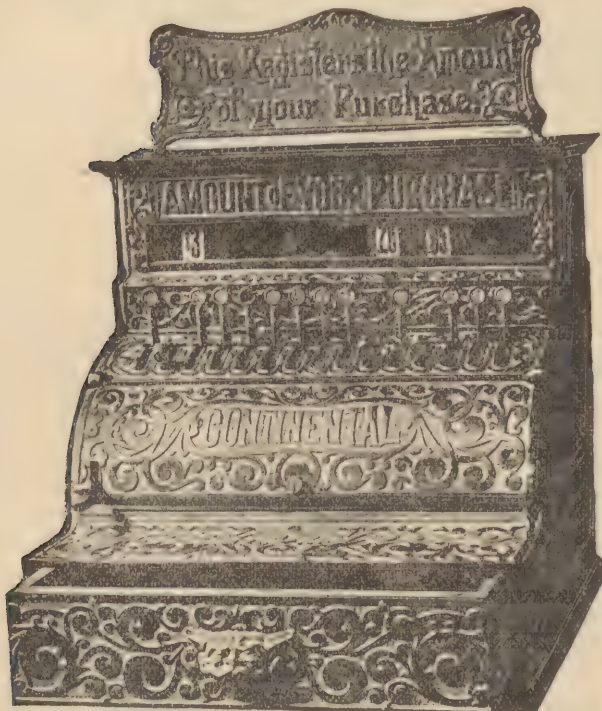 This Registers the Amount
of your Purchase.
AMOUNT OF YOUR PURCHASE
CONTINENTAL